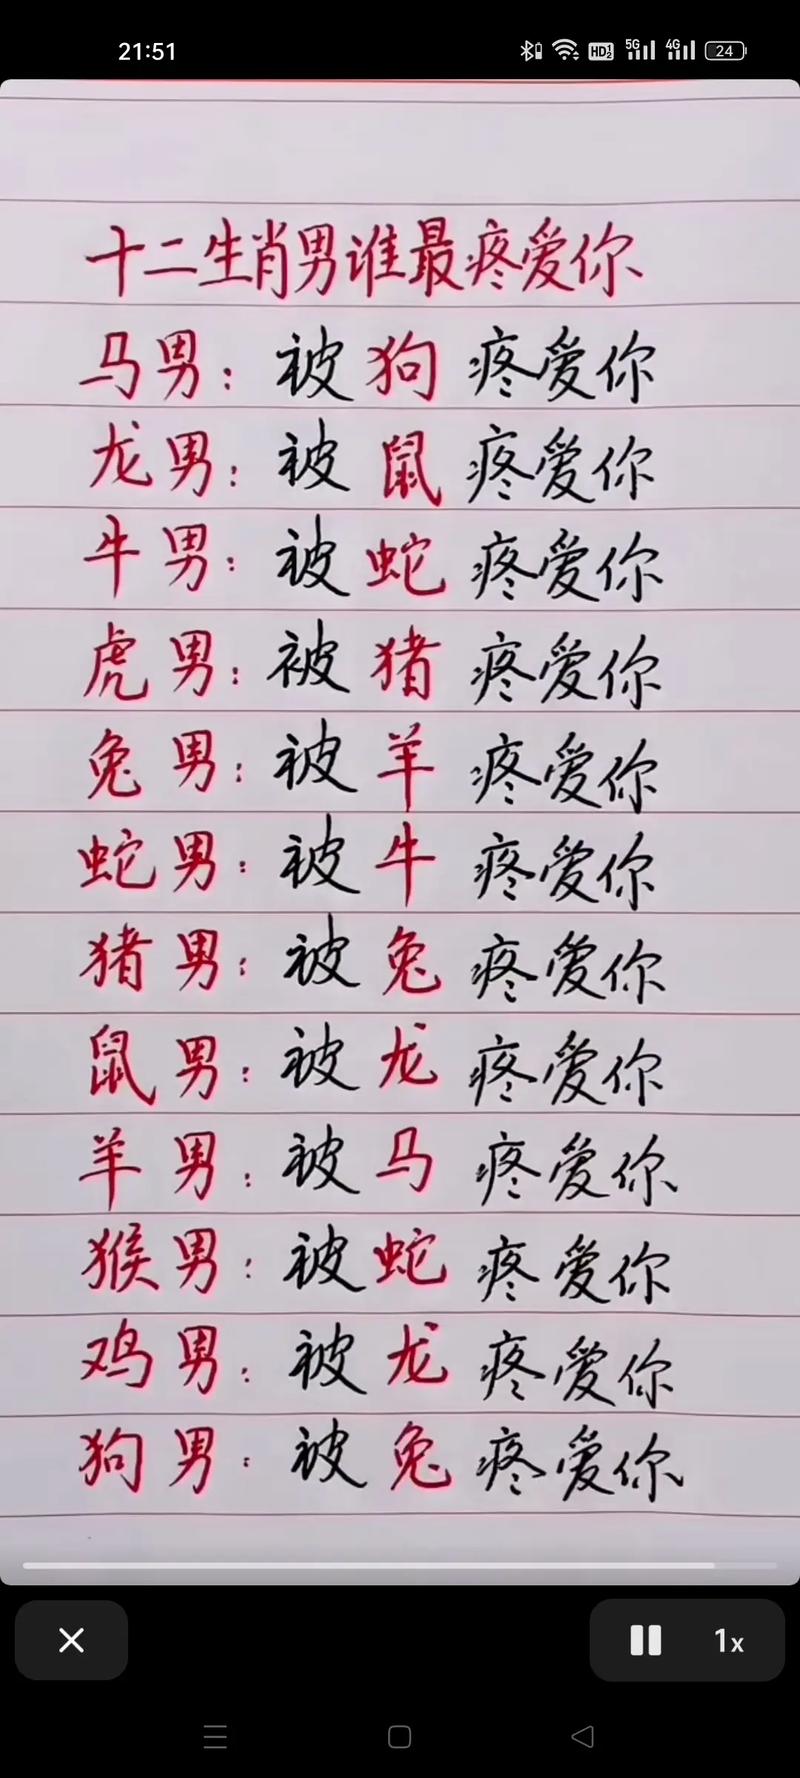 21:51
HD 5G 4G 24
十二生肖男谁最疼爱你
马男：被狗疼爱你
龙男：被鼠疼爱你
牛男：被蛇疼爱你
虎男：被猪疼爱你
兔男：被羊疼爱你
蛇男：被牛疼爱你
猪男：被兔疼爱你
鼠男：被龙疼爱你
羊男：被马疼爱你
猴男：被蛇疼爱你
鸡男：被龙疼爱你
狗男：被兔疼爱你
1x